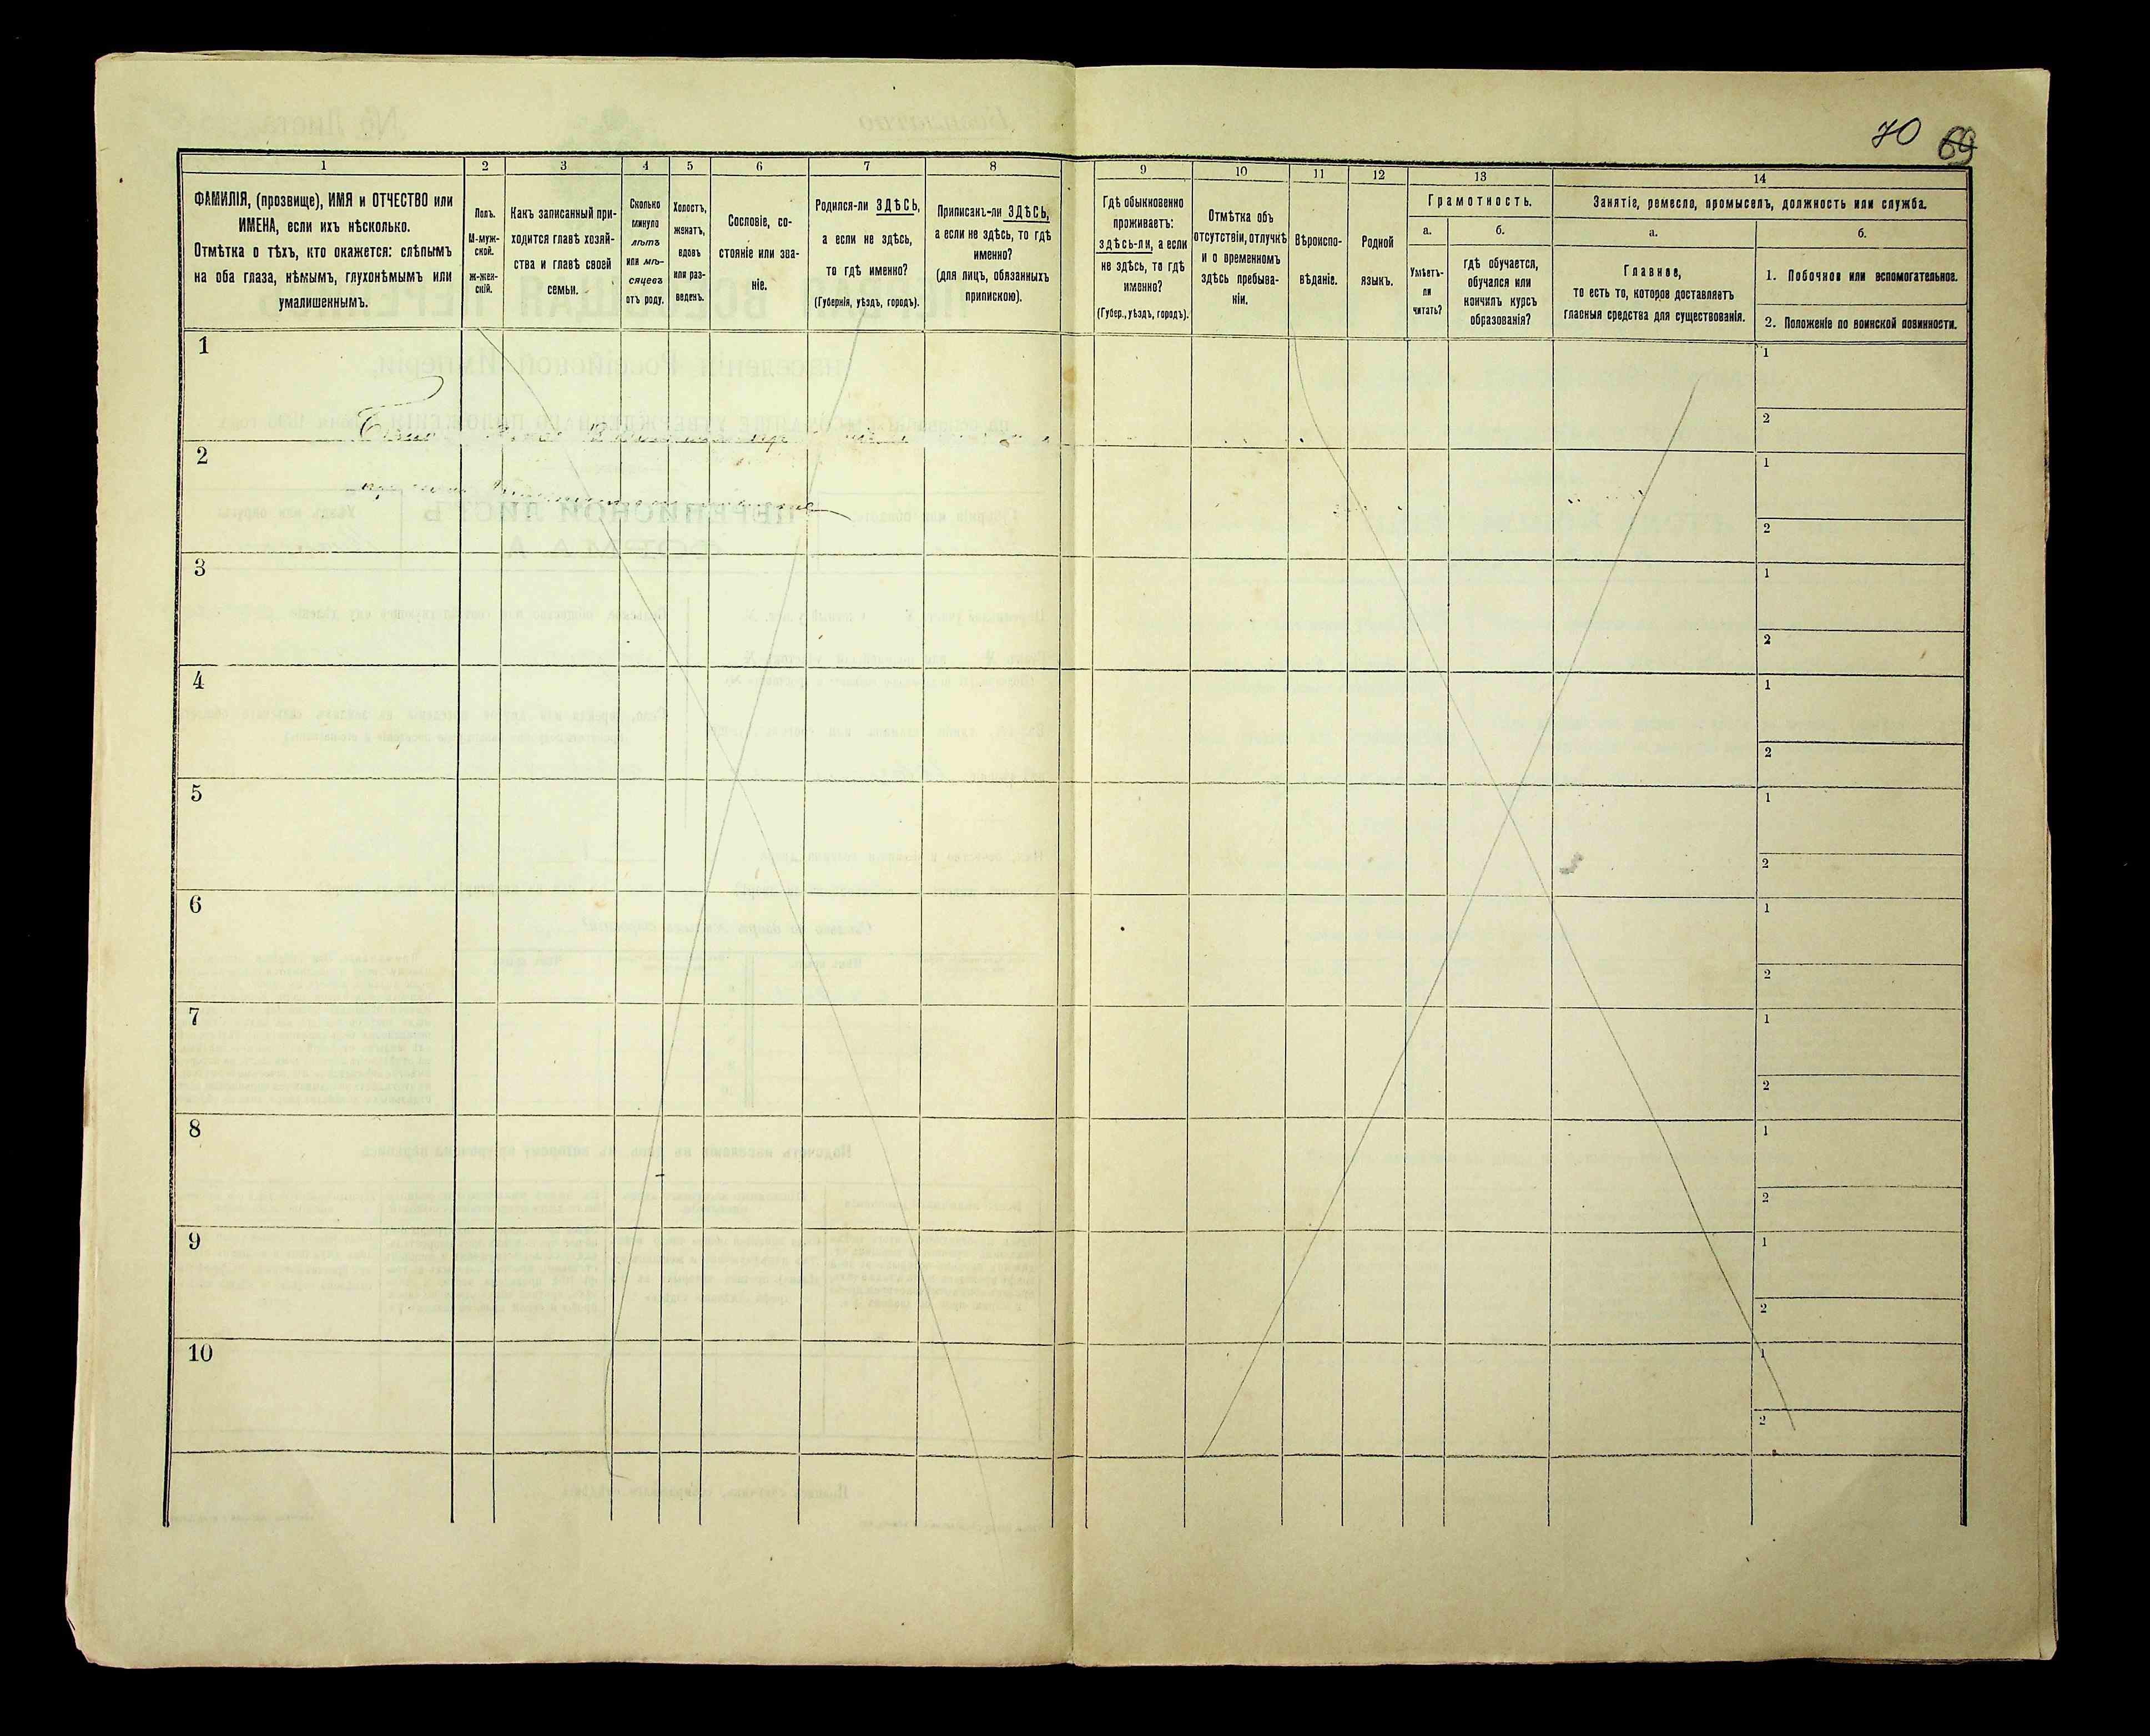 70 69
1
ФАМИЛІЯ, (прозвище), ИМЯ и ОТЧЕСТВО или
ИМЕНА, если ихъ нѣсколько.
Отмѣтка о тѣхъ, кто окажется: слѣпымъ
на оба глаза, нѣмымъ, глухонѣмымъ или
умалишеннымъ.
2
Полъ.
М-муж-
ской.
Ж-жен-
скій.
3
Какъ записанный при-
ходится главѣ хозяй-
ства и главѣ своей
семьи.
4
Сколько
минуло
лѣтъ
или мѣ-
сяцевъ
отъ роду.
5
Холостъ,
женатъ,
вдовъ
или раз-
веденъ.
6
Сословіе, со-
стояніе или зва-
ніе.
7
Родился-ли ЗДѢСЬ,
а если не здѣсь,
то гдѣ именно?
(Губернія, уѣздъ, городъ).
8
Приписанъ-ли ЗДѢСЬ,
а если не здѣсь, то гдѣ
именно?
(для лицъ, обязанныхъ
припискою).
9
Гдѣ обыкновенно
проживаетъ:
здѣсь-ли, а если
не здѣсь, то гдѣ
именно?
(Губер., уѣздъ, городъ).
10
Отмѣтка объ
отсутствіи, отлучкѣ
и о временномъ
здѣсь пребыва-
ніи.
11
Вѣроиспо-
вѣданіе.
12
Родной
языкъ.
13
Грамотность.
а.
Умѣетъ-
ли
читать?
б.
гдѣ обучается,
обучался или
кончилъ курсъ
образованія?
14
Занятіе, ремесло, промыселъ, должность или служба.
а.
Главное,
то есть то, которое доставляетъ
главныя средства для существованія.
б.
1. Побочное или вспомогательное.
2. Положеніе по воинской повинности.
1
1
2
2
1
2
3
1
2
4
1
2
5
1
2
6
1
2
7
1
2
8
1
2
9
1
2
10
1
2